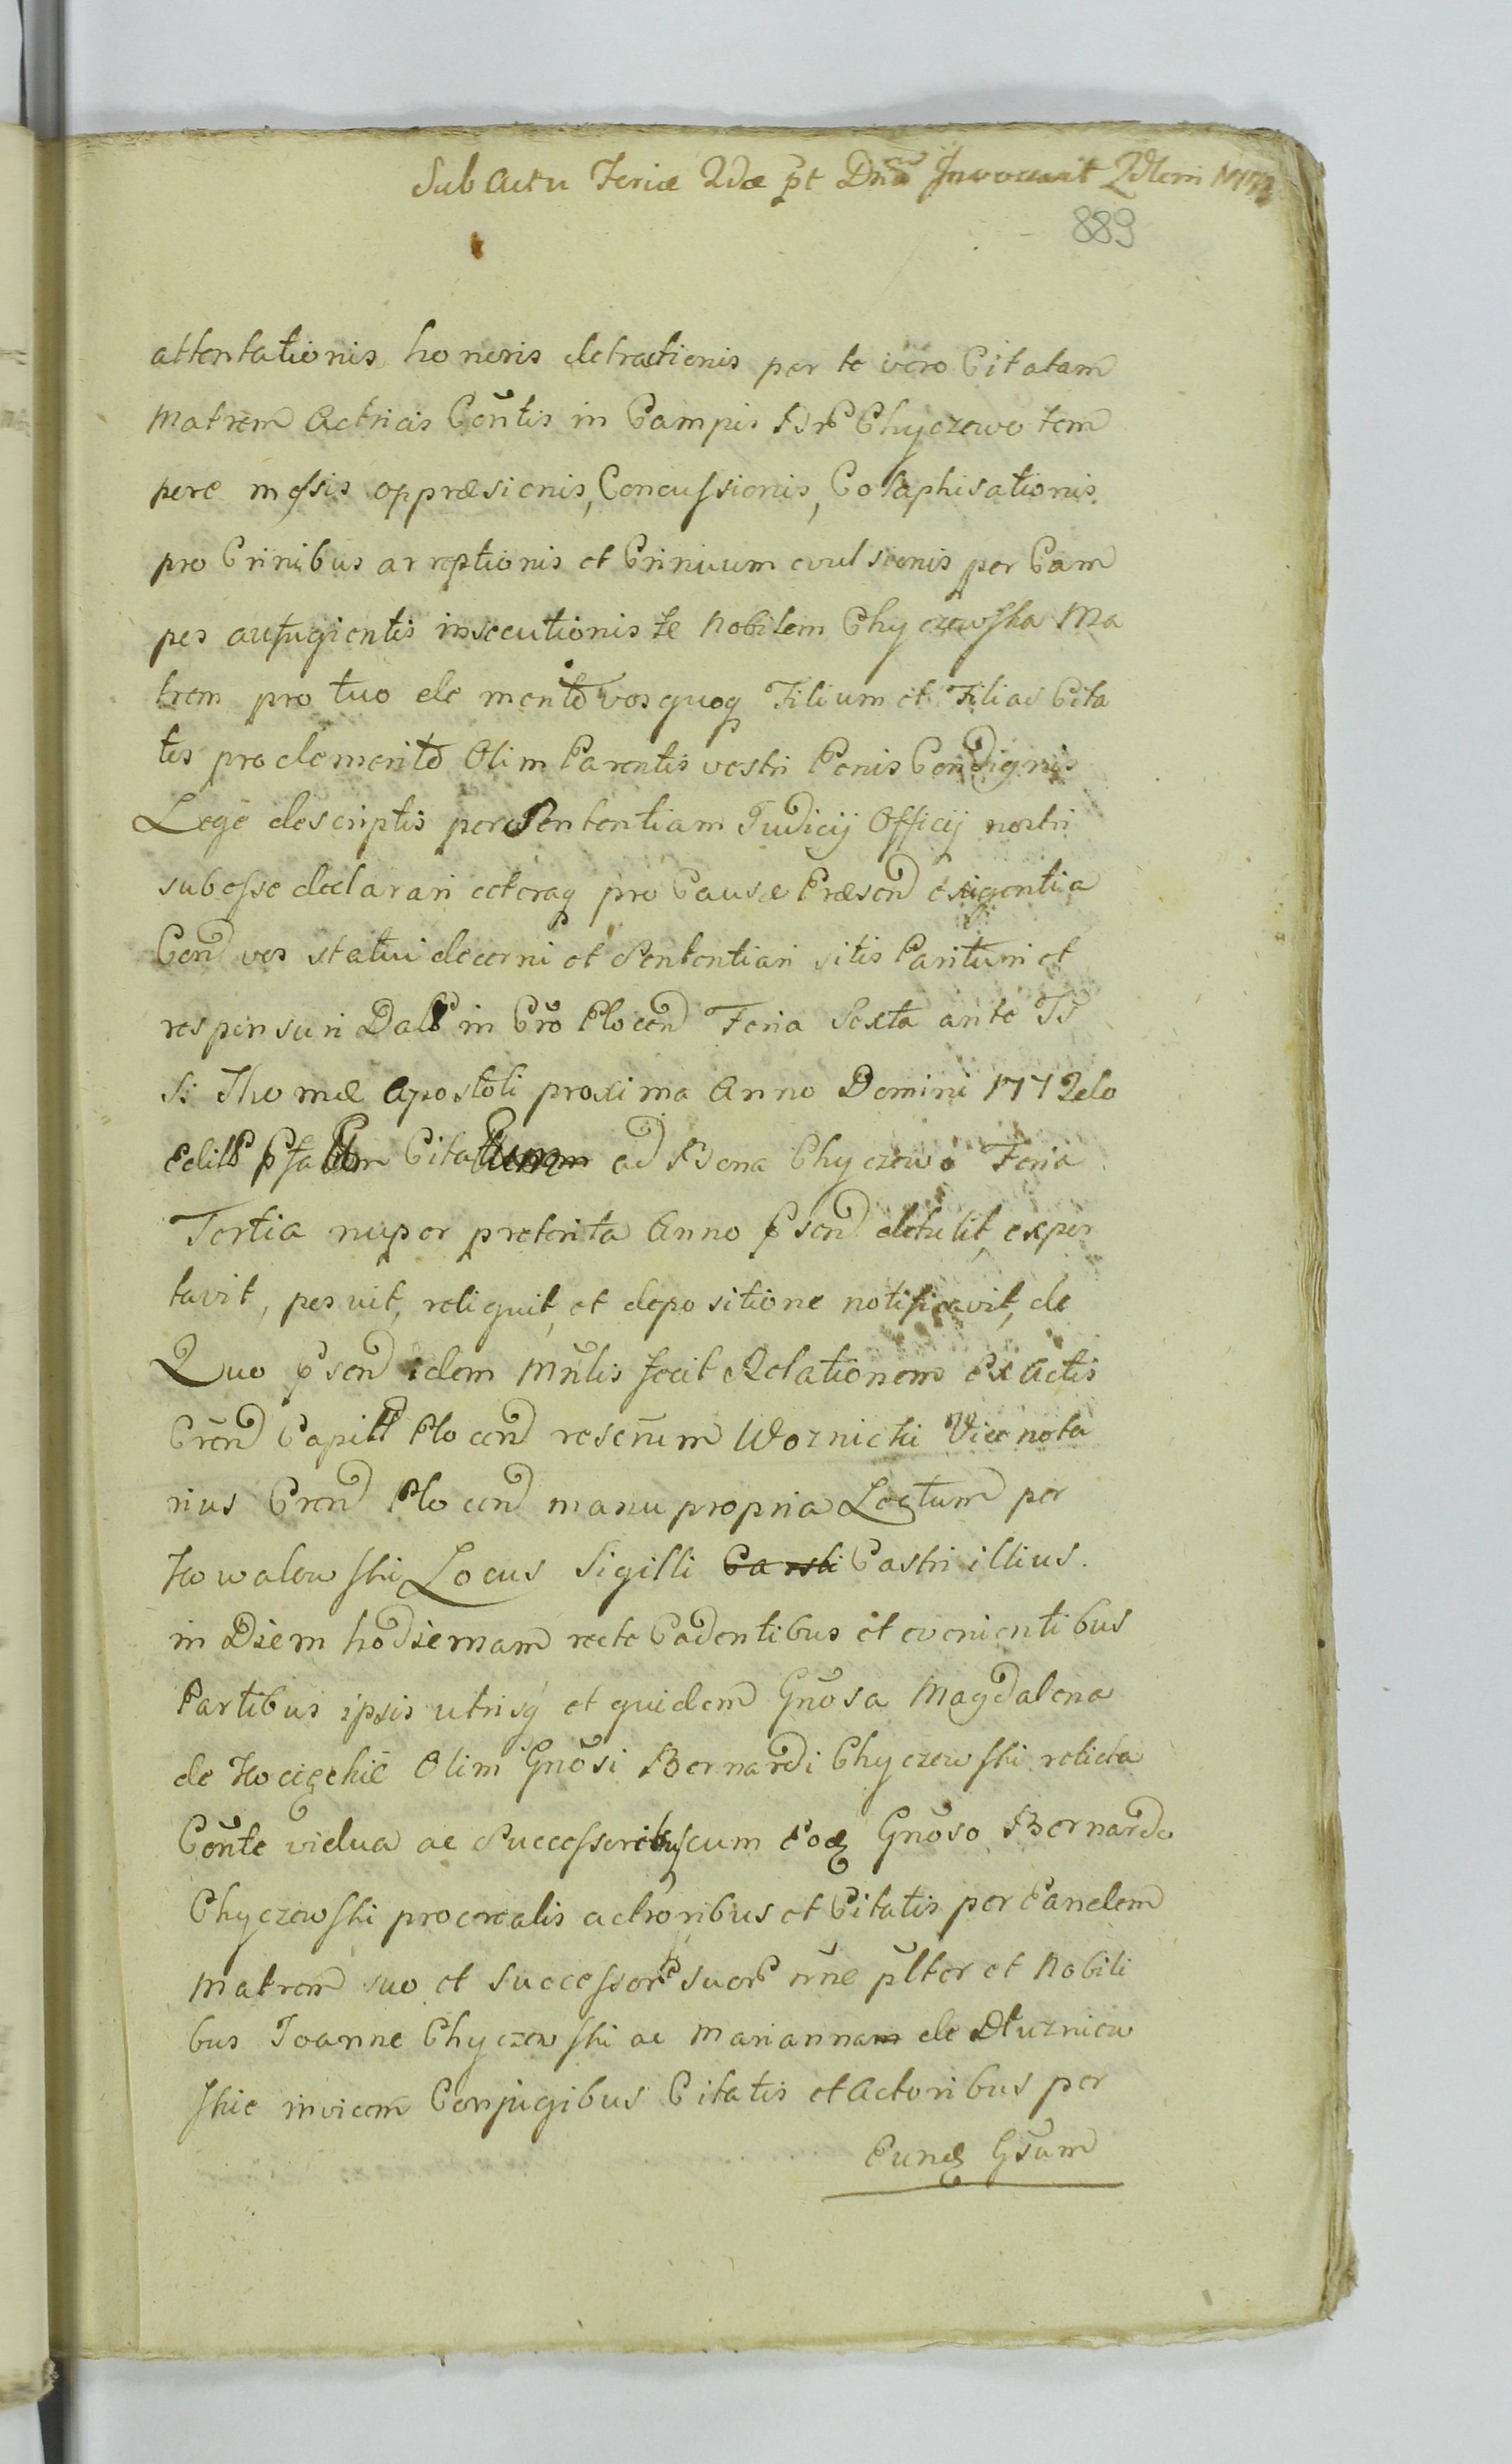 Sub Actu Feriæ 2dæ pt Dnca Invocavit
889
attentationis honoris detractionis per te vero Citatam
Matrem Actricis Contis in Campis Chyczewo tem
pore messis oppræsionis, Concussionis, Colaphisationis
pro Crinibus arreptionis et Crinium evulsionis per Cam
pos aufugientis insecutionis te Nobilem Chyczewska Ma
trem pro tuo de mento vos quoq Filium et Filias Cita
tos pro demerito Olim Parentis vestri Penis Condignis
Lege descriptis per Sententiam Judicij Officij nostri
subesse declarari ceteraq pro Causæ Præsen exigentia
Con vos statui decerni et Sententiari sitis Parituri et
responsuri Dat in Cro Plocen Feria Sexta ante
S: Thomæ Apostoli proxima Anno Domini 1772do
Edit ad Bona Chyczewo Feria
Tertia nuper preterita Anno psen detulit, expor
tavit, posuit, reliquit, et depositione notificavit, de
Quo psen idem Mnlis fecit Relationem Ex Actis
Cren Capit Plocen rescrum Woznicki Vice nota
rius Cren Plocen manu propria Lectum per
Kowalewski Locus Sigilli Castri illius.
in Diem hodiernam recte Cadentibus et evenientibus
Partibus ipsis utrisq et quidem Gnosa Magdalena
de Olim Gnosi Bernardi Chyczewski relicta
Conte vidua ac Successoribus cum eod Gnoso Bernardo
Chyczewski procreatis actoribus et Citatis per Eandem
Matrem suo et successor suor nne plter et Nobili
bus Joanne Chyczewski ac Mariannam de Dłuzniew
skie invicem Conjugibus Citatis et Actoribus per
Eund Gsum